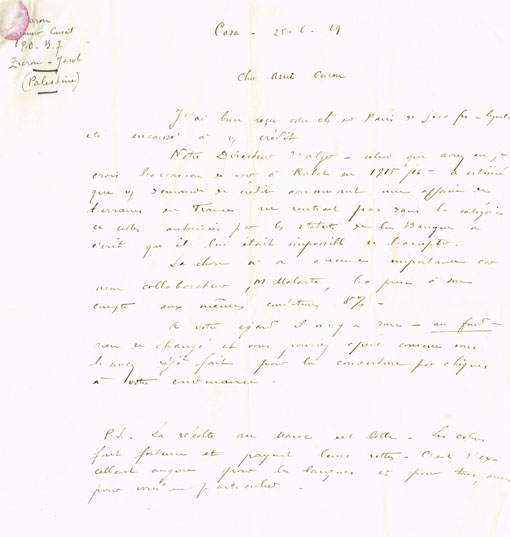 P.O. B. 7
Zicron - Jacob
(Palestine)
Casa - 25-6-29
Cher Ami Caron
J'ai bien reçu votre ch. sur Paris de
été encaissé à crédit
Notre Directeur d'Alger - celui que avez eu je
crois l'occasion de voir à Rabat en 1915 - a estimé
que demande de crédit concernant une affaire de
terrains en France ne rentrait pas dans la catégorie
de celles autorisées par les statuts de la Banque
écrit qu'il lui était impossible de l'accepter.
La chose n'a aucune importance car
mon collaborateur, M Malarte, l'a prise à son
compte aux mêmes conditions 8% -
A votre égard il n'y a donc - au fond -
rien de changé et vous pouvez opérer comme vous
l'avez déjà fait pour la couverture par chèques
à votre convenance.
P.S. La récolte au Maroc est belle - Les colons
font fortune et payent leurs dettes - C'est d'ex-
cellent augure pour les banques et pour tous, aussi
pour vous en particulier.